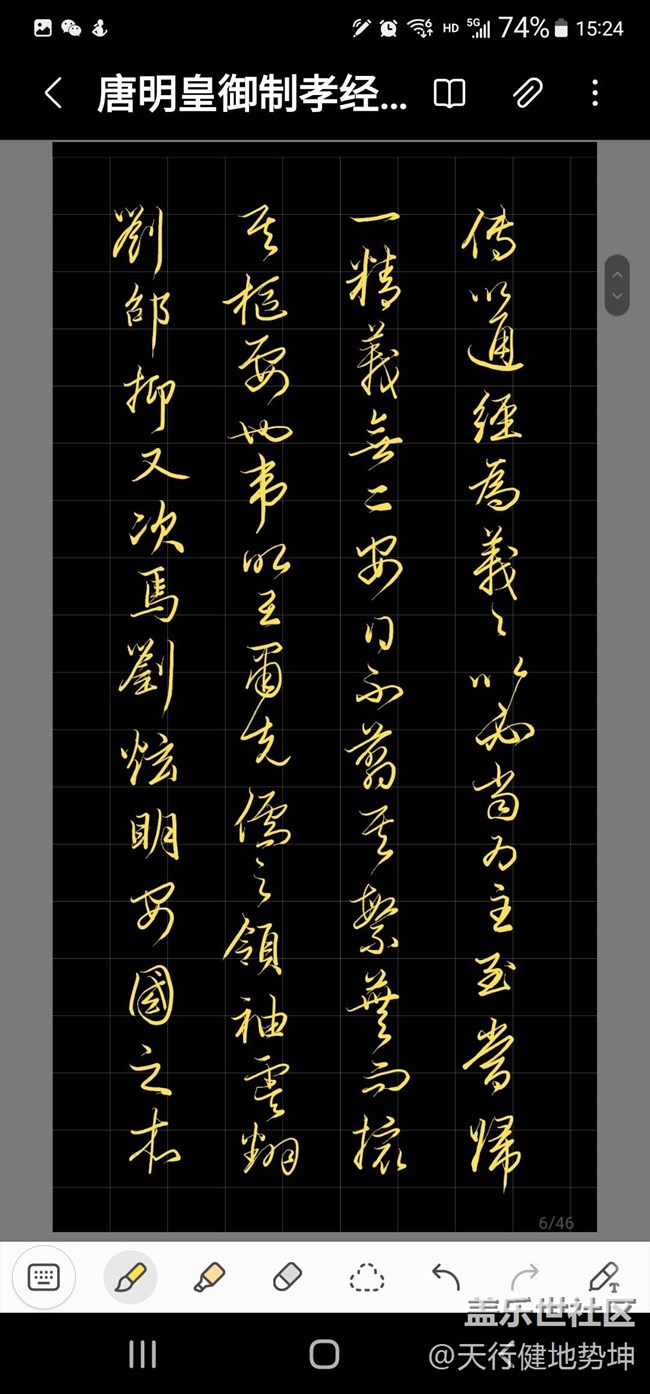 15:24
74%
HD
5G
6
唐明皇御制孝经...
传以通經為義々以必当为主至當歸
一精義無二安得不翦其繁蕪而撮
其枢要也韦昭王肅先儒之領袖虞翻
劉邵抑又次焉劉炫明安國之本
6/46
T
盖乐世社区
@天行健地势坤